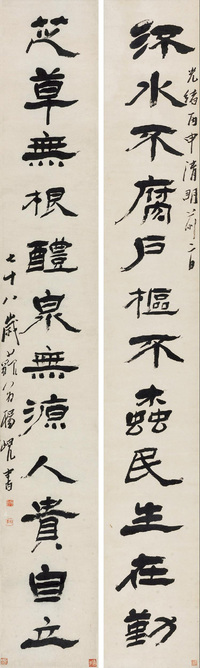 流水不腐戶樞不蠹民生在勤
光緒丙申清明前二日
芝草無根醴泉無源人貴自立
七十八歲藐翁楊峴書